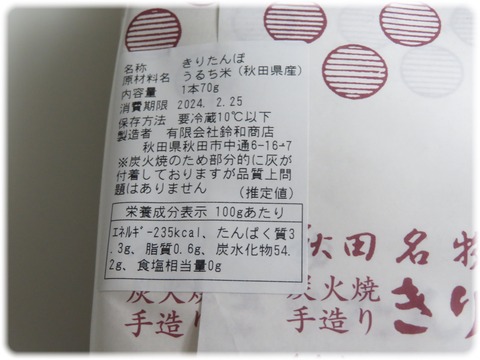 名称 きりたんぽ
原材料名 うるち米(秋田県産)
内容量 1本70g
消費期限 2024. 2.25
保存方法 要冷蔵10℃以下
製造者 有限会社鈴和商店
秋田県秋田市中通6-16-7
※炭火焼のため部分的に灰が
付着しておりますが品質上問
題はありません (推定値)
栄養成分表示 100gあたり
エネルギｰ235kcal、たんぱく質3
.3g、脂質0.6g、炭水化物54.
2g、食塩相当量0g
秋田名物
炭火焼
手造り
きり
炭火焼
手造り